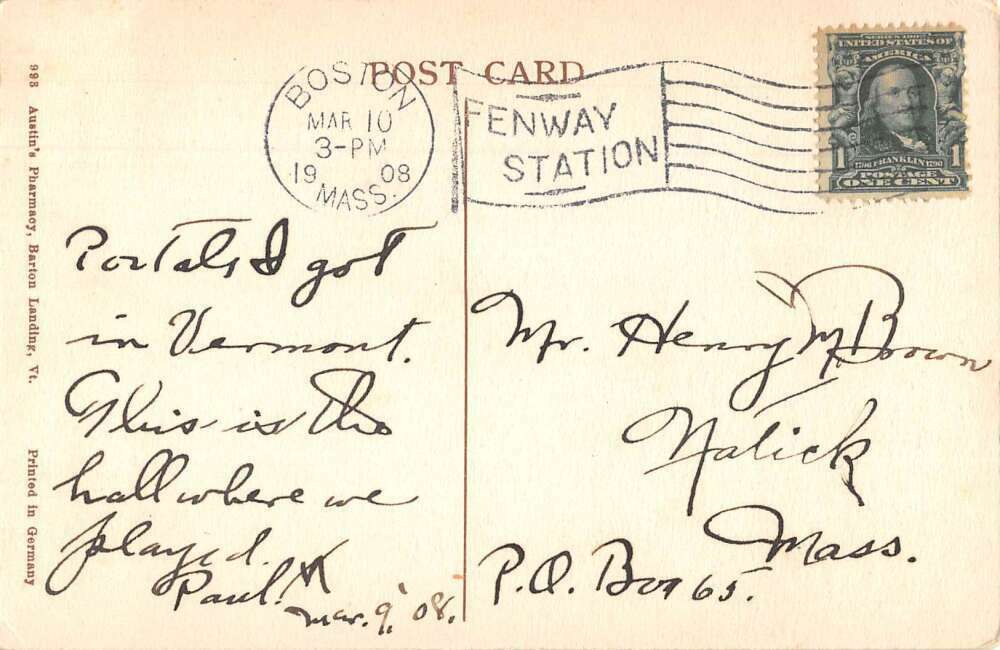 POST CARD
BOSTON
MAR 10
3-PM
1908
MASS.
FENWAY
STATION
SERIES 1902
UNITED STATES OF
AMERICA
1 1706 FRANKLIN 1790 1
POSTAGE
ONE CENT
993 Austin's Pharmacy, Barton Landing, Vt. Printed in Germany
Postals I got
in Vermont.
This is the
hall where we
played.
Paul.
Mar. 9, '08.
Mr. Henry M. Brown
Natick
Mass.
P.O. Box 65.